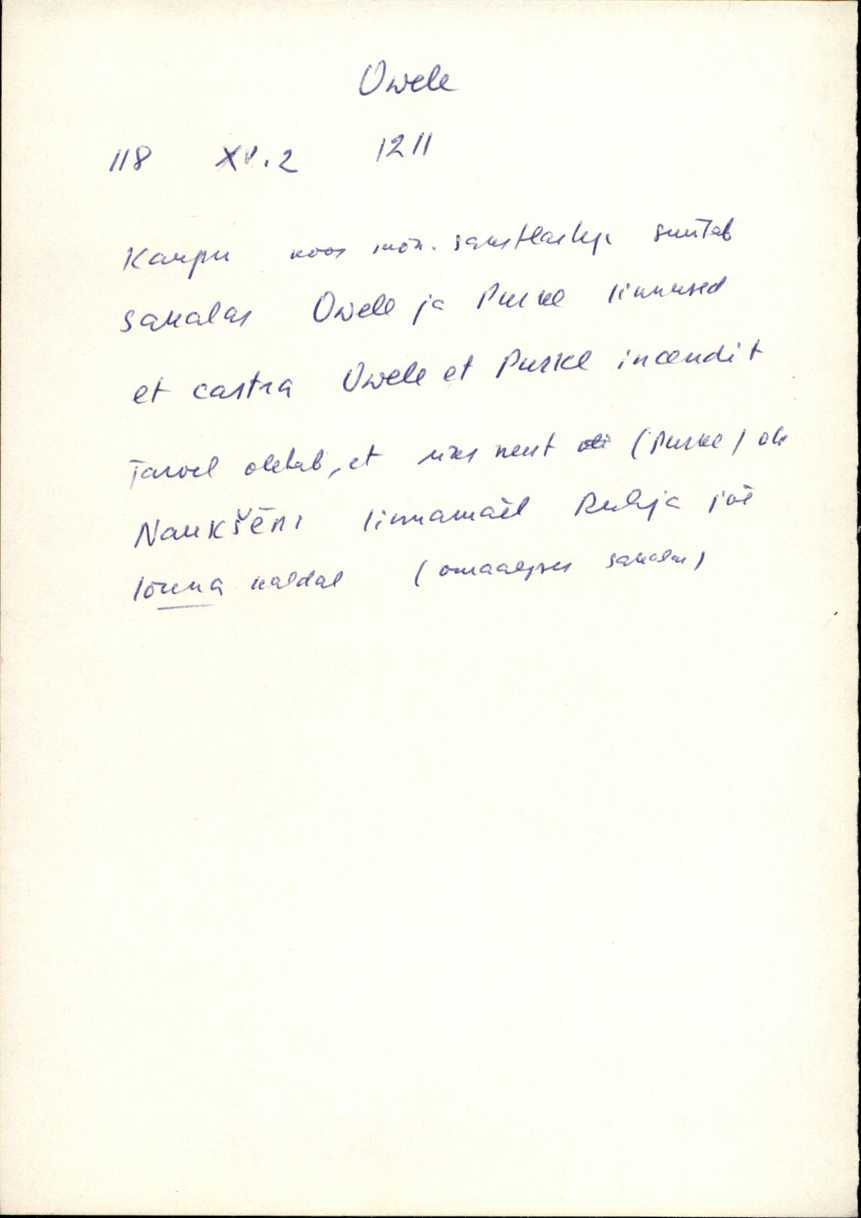 Owele
118 XV.2 1211
Kaupu koos mõn. süütab
Sakalas Owele ja Purke linnused
et castra Owele et Purke incendit
Tarvel oletab, et üks neist (Purke) oli
Naukšēni linnamäel Ruhja jõe
lõuna kaldal (omaaegses Sakalas)